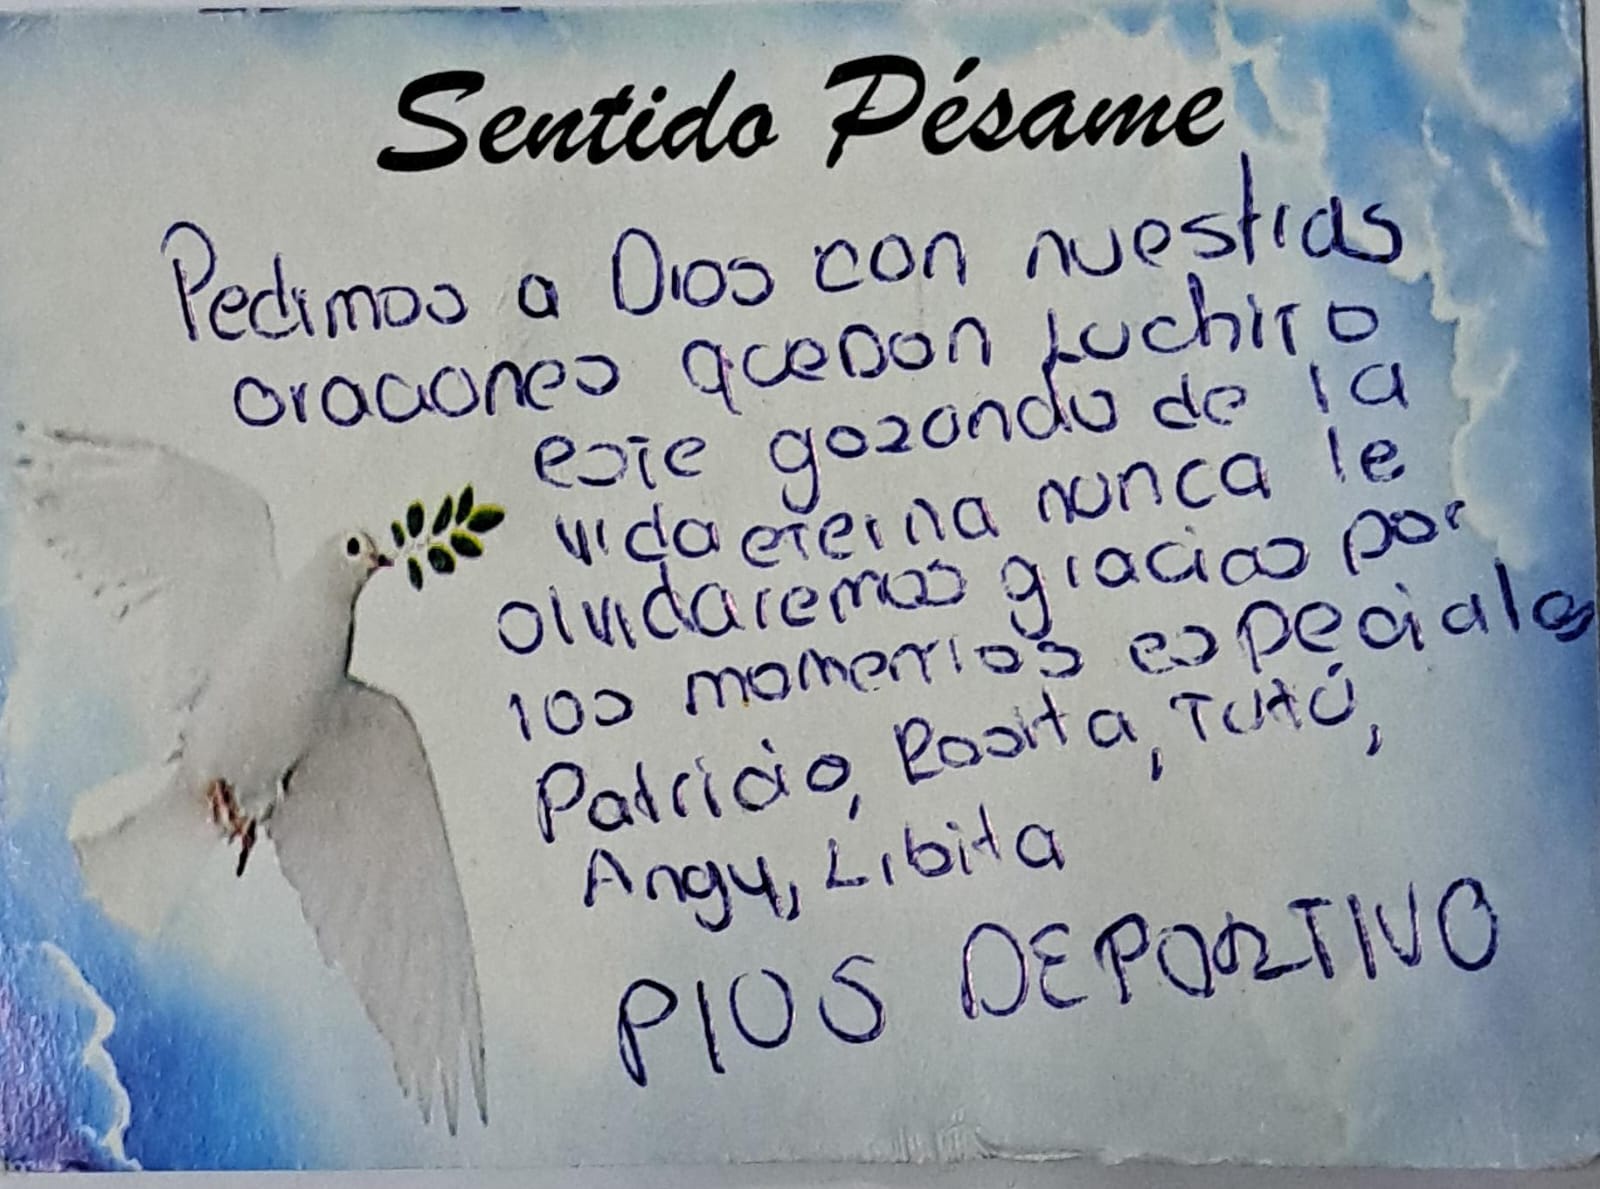 Sentido Pésame
Pedimos a Dios con nuestras
oraciones que Don Luchito
este gozando de la
vida eterna nunca le
olvidaremos gracias por
los momentos especiales
Patricio, Rosita, Tutú,
Angy, Libita
PIOS DEPORTIVO